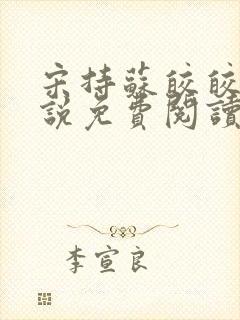 宋持蘇皎皎
說免費閱讀
李宣良